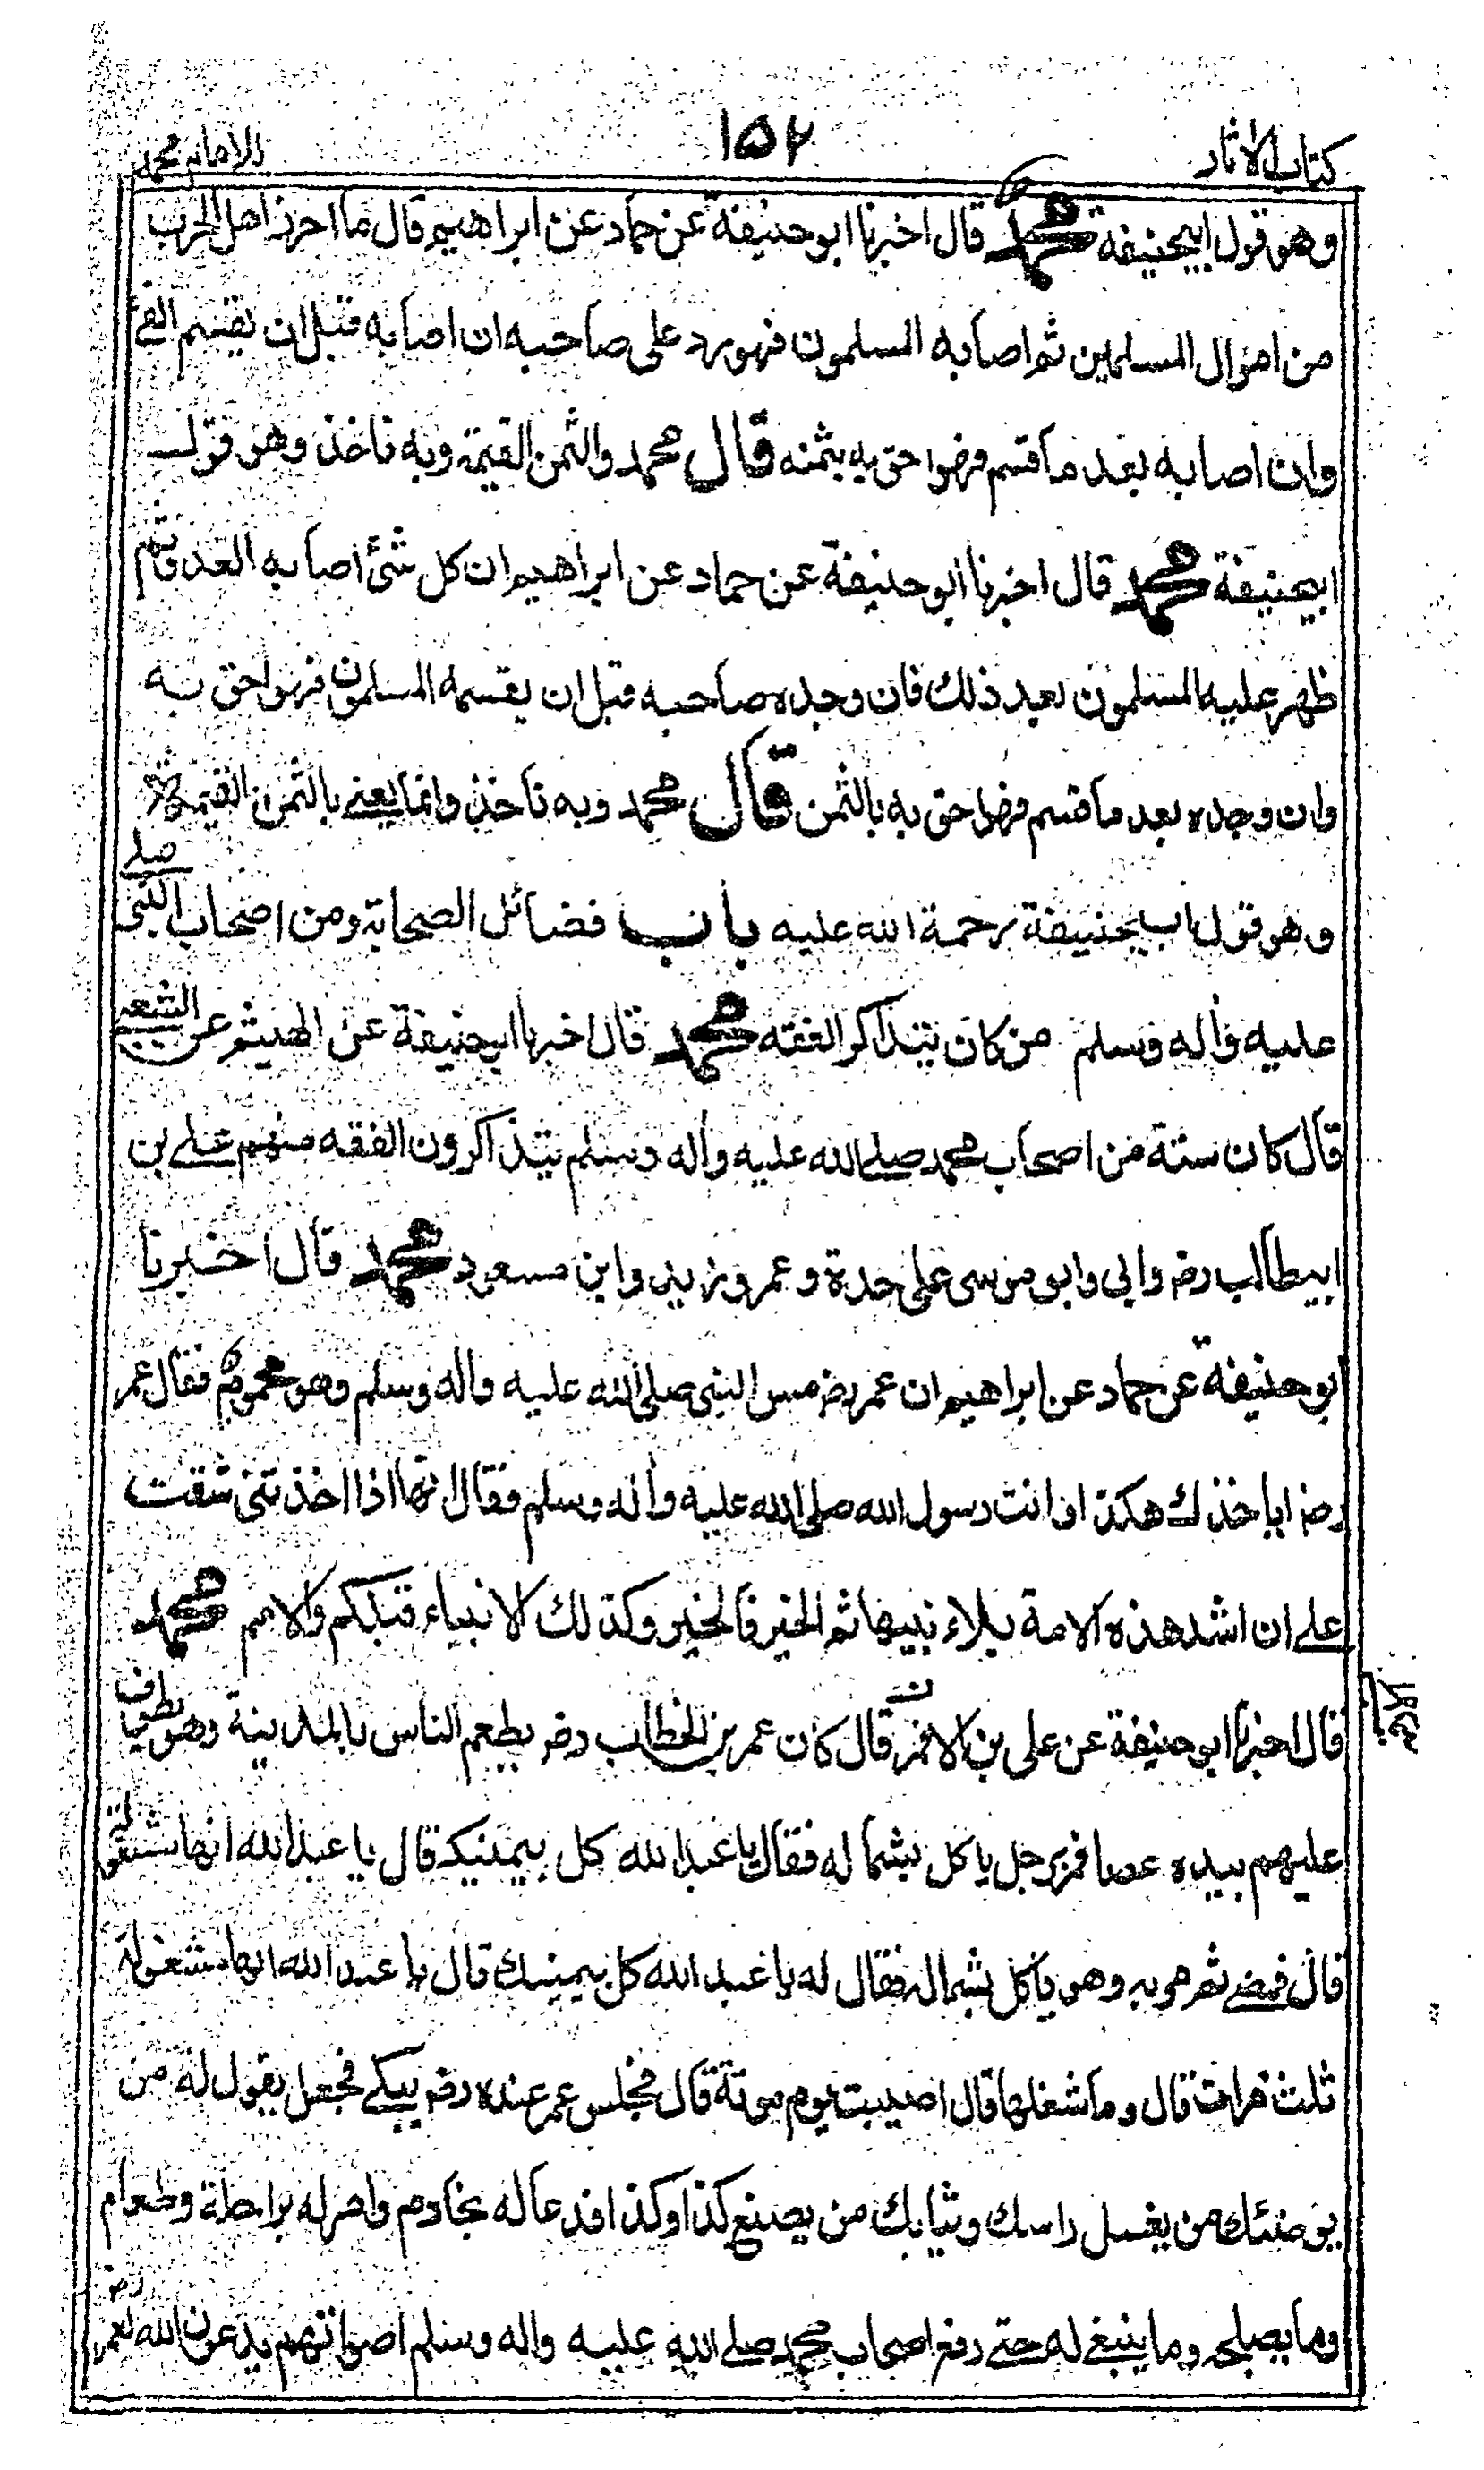 كتاب الاثار
١٥٢
للامام محمد
وهو قول ابيحنيفة محمد قال اخبرنا ابو حنيفة عن حماد عن ابراهيم قال ما احرز اهل الحرب
من اموال المسلمين ثم اصابه المسلمون فهو رد على صاحبه ان اصابه قبل ان يقسم الفئ
وان اصابه بعد ما قسم فهو احق به بثمنه قال محمد والثمن القيمة وبه ناخذ وهو قول
ابيحنيفة محمد قال اخبرنا ابو حنيفة عن حماد عن ابراهيم ان كل شئ اصابه العدو ثم
ظهر عليه المسلمون بعد ذلك فان وجده صاحبه قبل ان يقسمه المسلمون فهو احق به
وان وجده بعد ما قسم فهو احق به بالثمن قال محمد وبه ناخذ وانما يعنے بالثمن القيمة
وهو قول ابيحنيفة رحمة الله عليه باب فضائل الصحابة ومن اصحاب النبى صلے
عليه واله وسلم من كان يتذاكر الفقه محمد قال اخبرنا ابوحنيفة عن الهيثم عن الشعبے
قال كان ستة من اصحاب محمد صلے الله عليه واله وسلم يتذاكرون الفقه منهم علے بن
ابيطالب رض وابى وابو موسى على حدة وعمر وزيد وابن مسعود محمد قال اخبرنا
ابو حنيفة عن حماد عن ابراهيم ان عمر رض مس النبى صلى الله عليه واله وسلم وهو محموم فقال عمر
رض اياخذك هكذا وانت رسول الله صلى الله عليه واله وسلم فقال انها اذا اخذتنى شقت
علے ان اشد هذه الامة بلاء نبيها ثم الخير فالخير وكذلك الانبياء قبلكم والامم محمد
قال اخبرنا ابو حنيفة عن على بن الاقمر قال كان عمر بن الخطاب رض يطعم الناس بالمدينة وهو يطوف
عليهم بيده عصا فمر برجل ياكل بشماله فقال يا عبد الله كل بيمينك قال يا عبد الله انها مشغولة
قال فمضے ثم مر به وهو ياكل بشماله فقال له يا عبد الله كل بيمينك قال يا عبد الله انها مشغولة
ثلث مرات قال وما شغلها قال اصيبت يوم موتة قال فجلس عمر عنده رض يبكے فجعل يقول له من
يوضئك من يغسل راسك وثيابك من يصنع كذا وكذا فدعا له بخادم وامر له براحلة وطعام
وما يصلحه وما ينبغے له حتے رفع اصحاب محمد صلے الله عليه واله وسلم اصواتهم يدعون الله لعمر رض